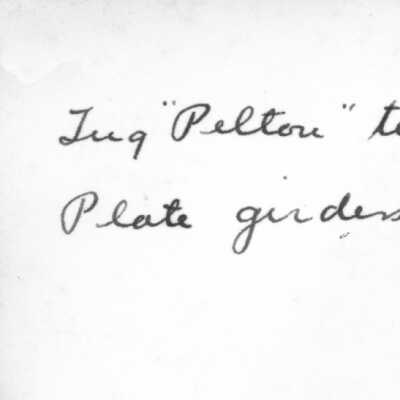 Tug "Pelton" t
Plate girders